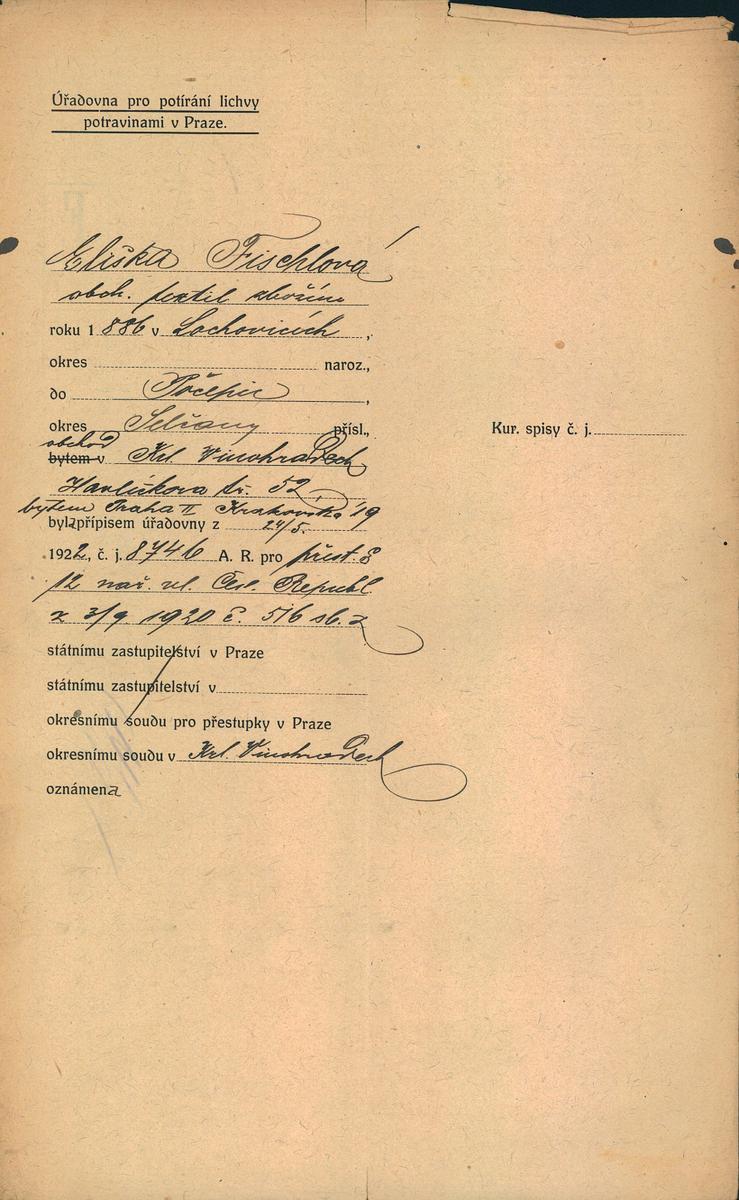 Úřadovna pro potírání lichvy
potravinami v Praze.
Eliška Fischlová
obch. textil zbožím
roku 1 886 v Lochovicích ,
okres naroz.,
do Počepic ,
okres Selčany přísl.,
Kur. spisy č. j.
obchod
bytem v Krl. Vinohradech
Havlíčkova tř. 52
bytem Praha II Krakovská 19
byla přípisem úřadovny z 24/5.
1922, č. j. 8746 A. R. pro přest. §
12 nař. vl. Česl. Republ.
z 3/9 1920 č. 516 sb. z
státnímu zastupitelství v Praze
státnímu zastupitelství v
okresnímu soudu pro přestupky v Praze
okresnímu soudu v Krl. Vinohradech
oznámena